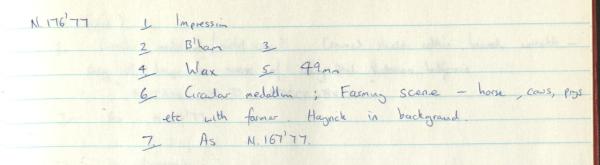 N.176'77 1 Impression
2 B'ham 3
4 Wax 5 49mm
6 Circular medallion ; Farming scene – horse, cows, pigs
etc with farmer. Hayrick in background.
7 As N.167'77.